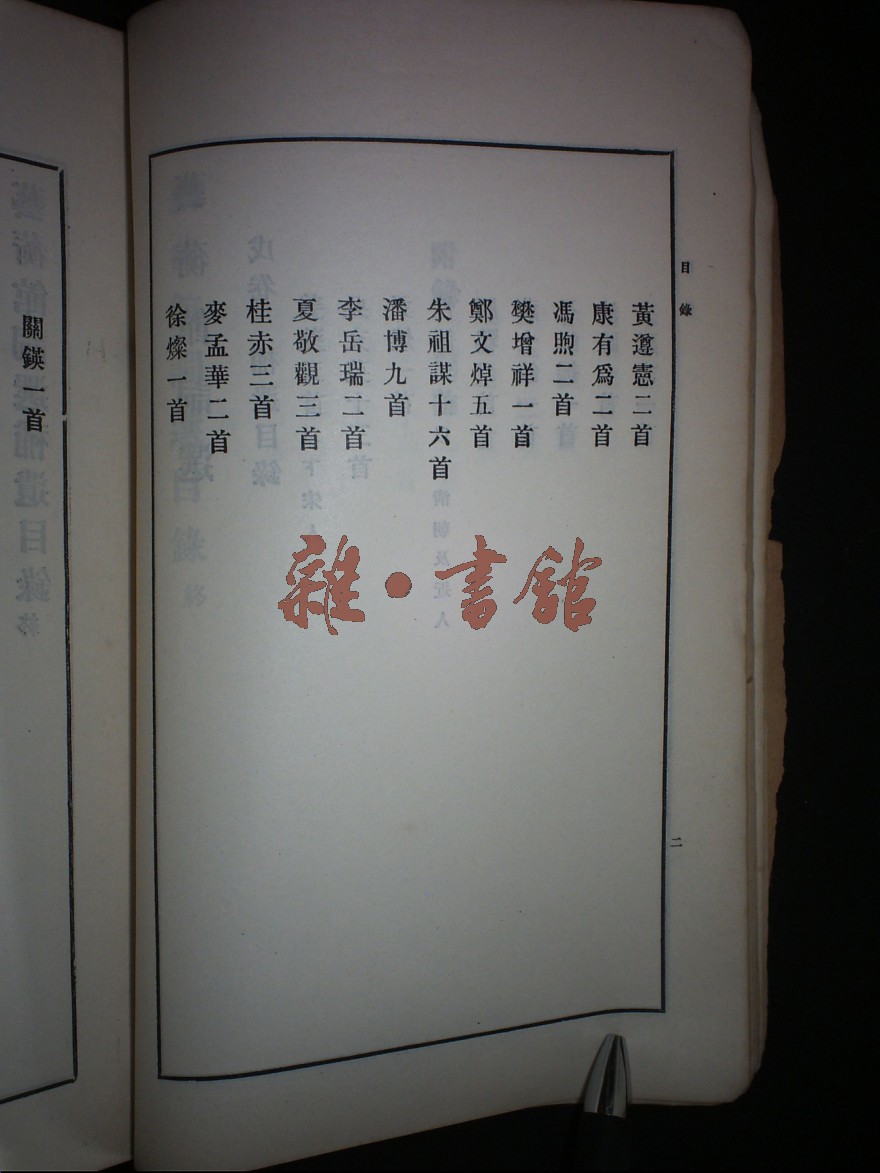 目錄
黃遵憲二首
康有爲二首
馮煦二首
樊增祥一首
鄭文焯五首
朱祖謀十六首
潘博九首
李岳瑞二首
夏敬觀三首
桂赤三首
麥孟華二首
徐燦一首
二
關鍈一首
雜·書館